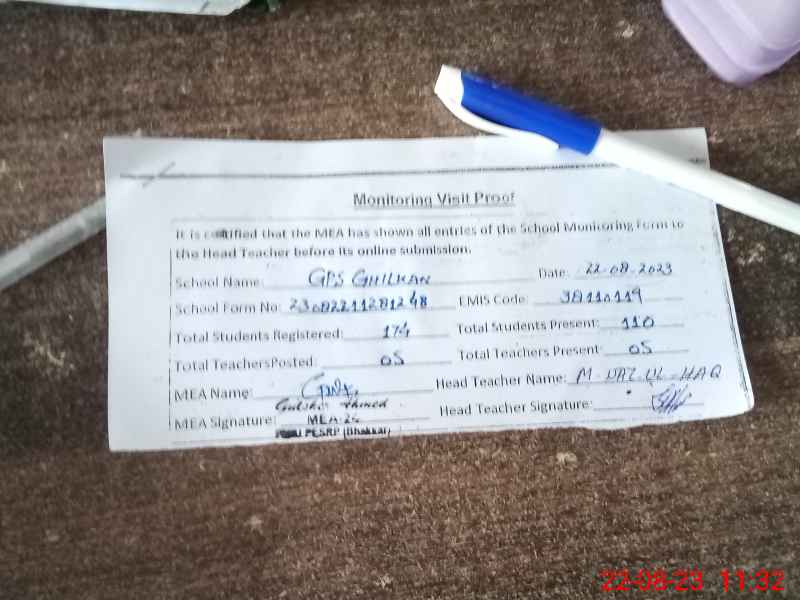 Monitoring Visit Proof
It is certified that the MEA has shown all entries of the School Monitoring Form to
the Head Teacher before its online submission.
School Name: GPS GHILKAN Date: 22-08-2023
School Form No: 23082211281248 EMIS Code: 38110119
Total Students Registered: 174 Total Students Present: 110
Total TeachersPosted: 05 Total Teachers Present: 05
MEA Name: Head Teacher Name: M-UAZ-UL-HAQ
Ahmed
MEA Signature: MEA-24 Head Teacher Signature:
PESRP (Bhakkar)
22-08-23 11:32